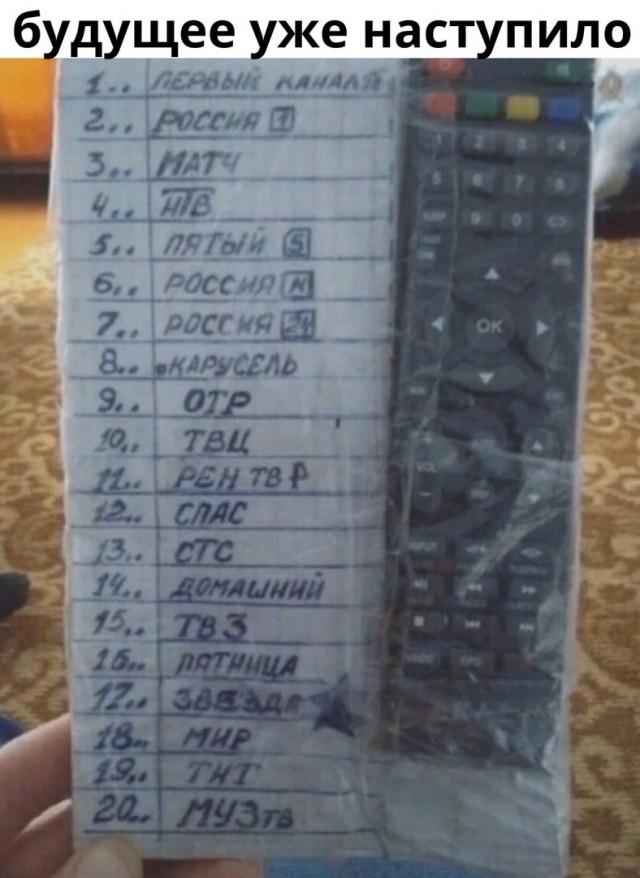 будущее уже наступило
1.. ПЕРВЫЙ КАНАЛ
2.. РОССИЯ 1
3.. МАТЧ
4.. НТВ
5.. ПЯТЫЙ 5
6.. РОССИЯ К
7.. РОССИЯ 24
8.. КАРУСЕЛЬ
9.. ОТР
10.. ТВЦ
11.. РЕН ТВ
12.. СПАС
13.. СТС
14.. ДОМАШНИЙ
15.. ТВ3
16.. ПЯТНИЦА
17.. ЗВЕЗДА
18.. МИР
19.. ТНТ
20.. МУЗТВ
1 2 3 4
5 6 7 8
9 0
OK